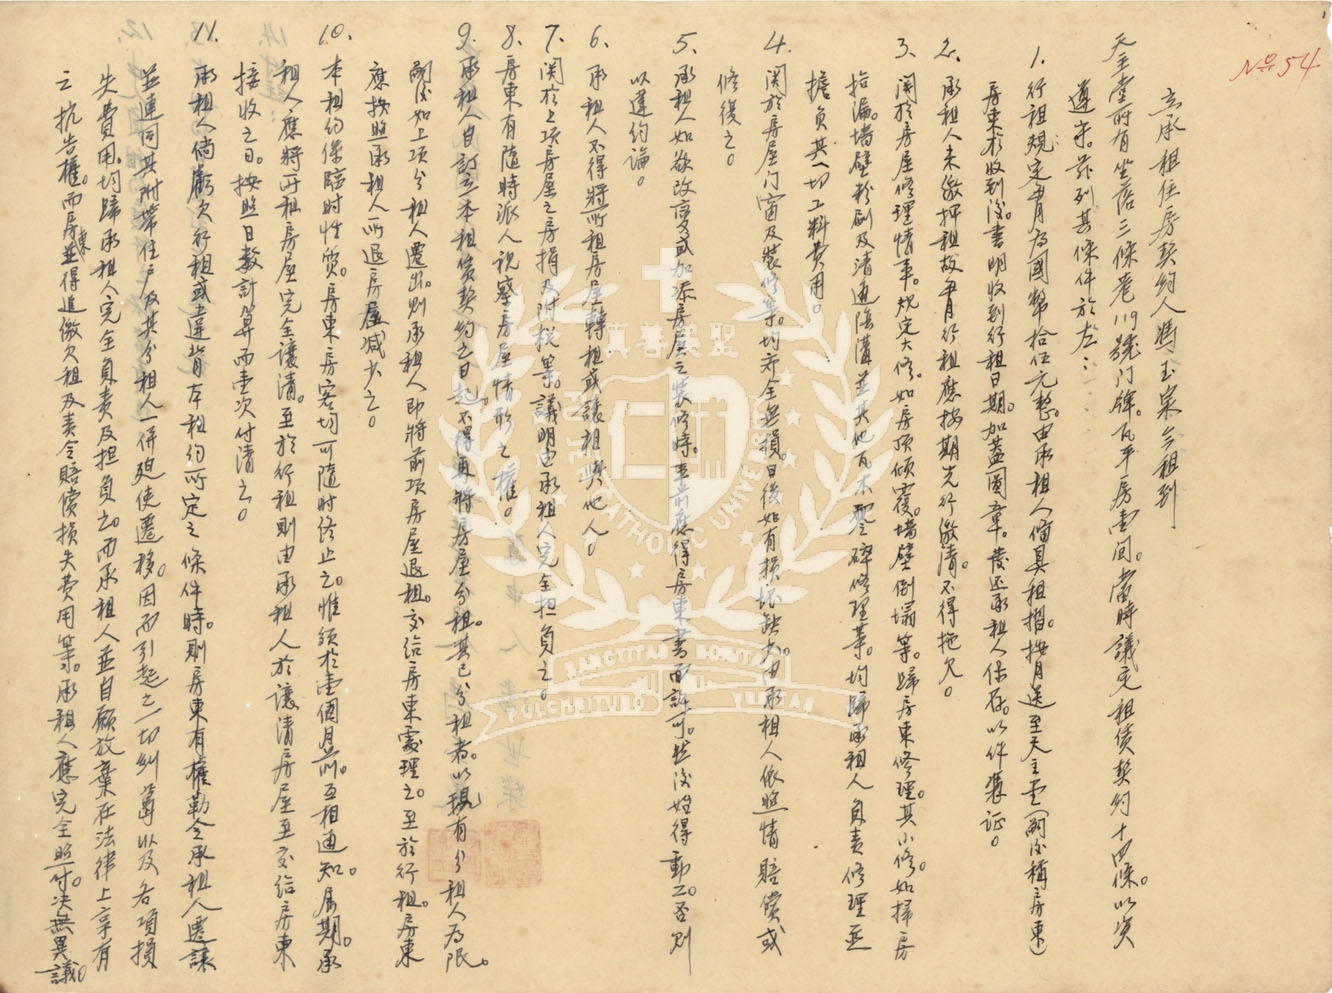 No 54
立承租住房契約人馮玉泉今租到
天主堂所有坐落三條老119號门牌。瓦平房壹间。當時議定租賃契約十四條。以资
遵守。茲列其條件於左：
1. 行租規定每月為國幣拾伍元整。由承租人備具租摺。按月送至天主堂（嗣後稱房東）
房東於收到後。書明收到行租日期。加蓋圖章。發还承租人保存。以作憑证。
2. 承租人未繳押租故每月行租應按期先行繳清。不得拖欠。
3. 関於房屋修理情事。規定大修。如房頂傾覆。墙壁倒塌等。歸房東修理。其小修。如掃房
拾漏。墙壁粉刷及清通陰溝並其他瓦木零碎修理等。均歸承租人負责修理並
擔負其一切工料費用。
4. 関於房屋门窗及装修等。均齐全無損。日後如有損坏缺少。由承租人依照情賠償或
修復之。
5. 承租人如欲改變或加添房屋之装修時。事前應得房東書面許可。然後始得動工。否则
以違约論。
6. 承租人不得將所租房屋轉租或讓租與他人。
7. 関於上项房屋之房捐及附税等。議明由承租人完全担負之。
8. 房東有隨時派人視察房屋情形之權。
9. 承租人自訂立本租賃契约之日起。不得再將房屋分租。其已分租者。以現有分租人為限。
嗣後如上項分租人遷出。则承租人即將前项房屋退租。交给房東處理之。至於行租。房東
應按照承租人所退房屋减少之。
10. 本租约係臨時性质。房東房客均可隨时终止之。惟须於壹個月前。互相通知。届期。承
租人應將所租房屋完全讓清。至於行租則由承租人於讓清房屋至交给房東
接收之日。按照日數計算而壹次付清之。
11. 承租人倘虧欠行租或違背本租约所定之條件時。則房東有權勒令承租人遷讓
並連同其附带住户及其分租人一併廹使遷移。因而引起之一切糾葛以及各项損
失費用。均歸承租人完全負责及担負之。而承租人並自願放棄在法律上享有
之抗告權。而房東並得追繳欠租及责令賠償損失費用等。承租人應完全照付。决無異議。
真善美聖
FU JEN CATHOLIC UNIVERSITY
SANCTITAS BONITAS
PULCHRITUDO VERITAS